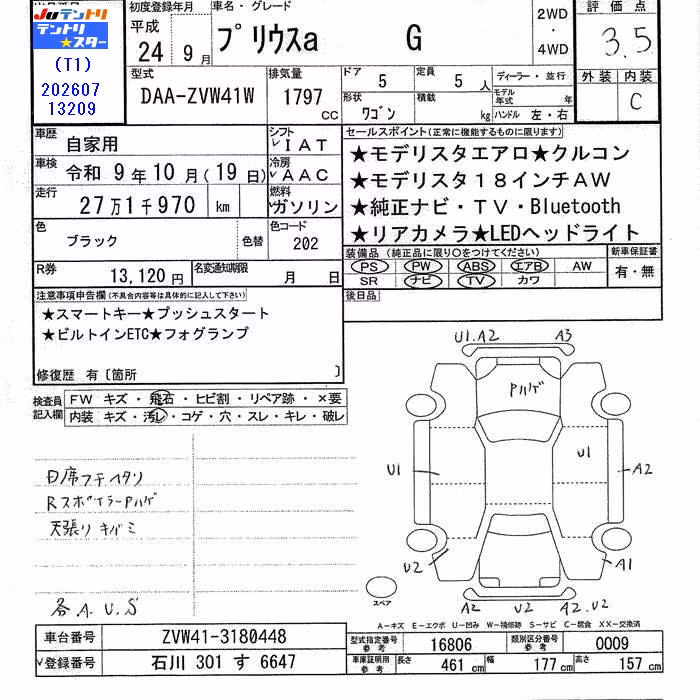 Juテントリ
テントリ
★スター
(T1)
202607
13209
初度登録年月
平成
24年9月
車名・グレード
プリウスa G
2WD
・
4WD
評価点
3.5
外装 内装
C
型式
DAA-ZVW41W
排気量
1797
cc
ドア 5
定員 5 人
形状 ワゴン
積載 kg
ディーラー・並行
モデル年式 年
ハンドル 左・右
車歴 自家用
シフト
√IAT
車検 令和 9年10月(19日)
冷房
√AAC
走行 27万1千970 km
燃料
√ガソリン
色 ブラック 色替
色コード
202
R券 13,120円
名変通知期限 月 日
セールスポイント(正常に機能するものに限ります)
★モデリスタエアロ★クルコン
★モデリスタ18インチAW
★純正ナビ・TV・Bluetooth
★リアカメラ★LEDヘッドライト
装備品(純正品に限り○をつけてください)
PS PW ABS エアB AW
SR ナビ TV カワ
新車保証書
有・無
後日品
注意事項申告欄(不具合内容等は具体的に記入して下さい)
★スマートキー★プッシュスタート
★ビルトインETC★フォグランプ
修復歴 有〔箇所 〕
検査員
記入欄
FW キズ・飛石・ヒビ割・リペア跡・×要
内装 キズ・汚レ・コゲ・穴・スレ・キレ・破レ
D席フチヘタリ
RスポイラーPハゲ
天張りキバミ
各A.U.S
U1.A2
A3
Pハゲ
U1
U1
A2
U2
A1
スペア
A2
U2
A2.U2
A-キズ E-エクボ U-凹み W-補修跡 S-サビ C-腐食 XX-交換済
車台番号 ZVW41-3180448
√登録番号 石川 301 す 6647
型式指定番号
参考
16806
類別区分番号
参考
0009
車庫証明用
参考
長さ 461 cm
幅 177 cm
高さ 157 cm